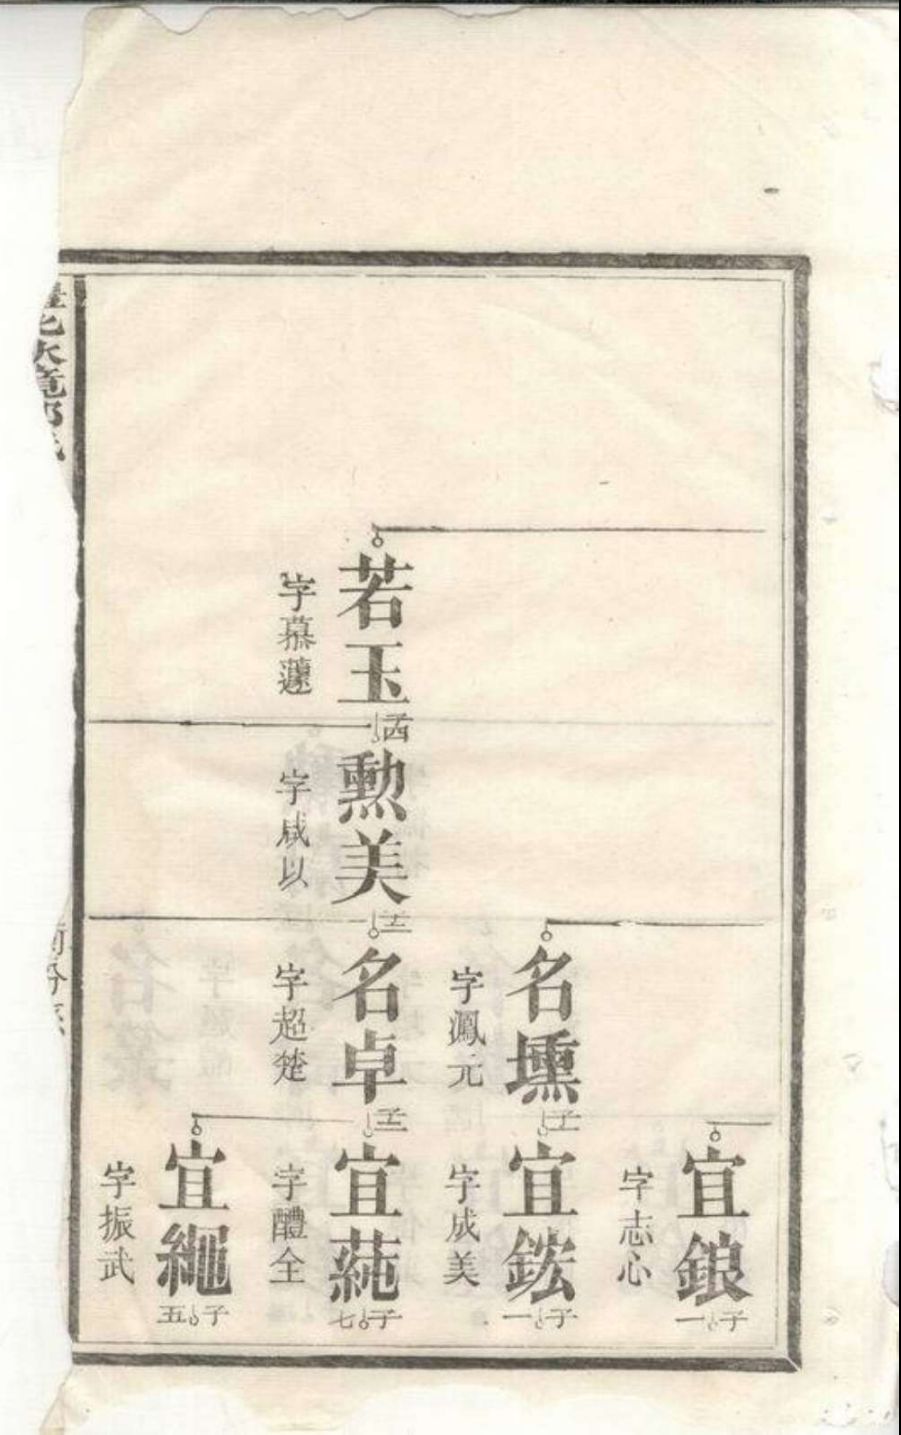 宜鋃
字志心
子一
名壎
字鳳元
子一
宜鋐
字成美
子一
若玉
字慕蘧
子四
勲美
字咸以
子二
名卓
字超楚
子二
宜蒓
字醴全
子七
宜繩
字振武
子五